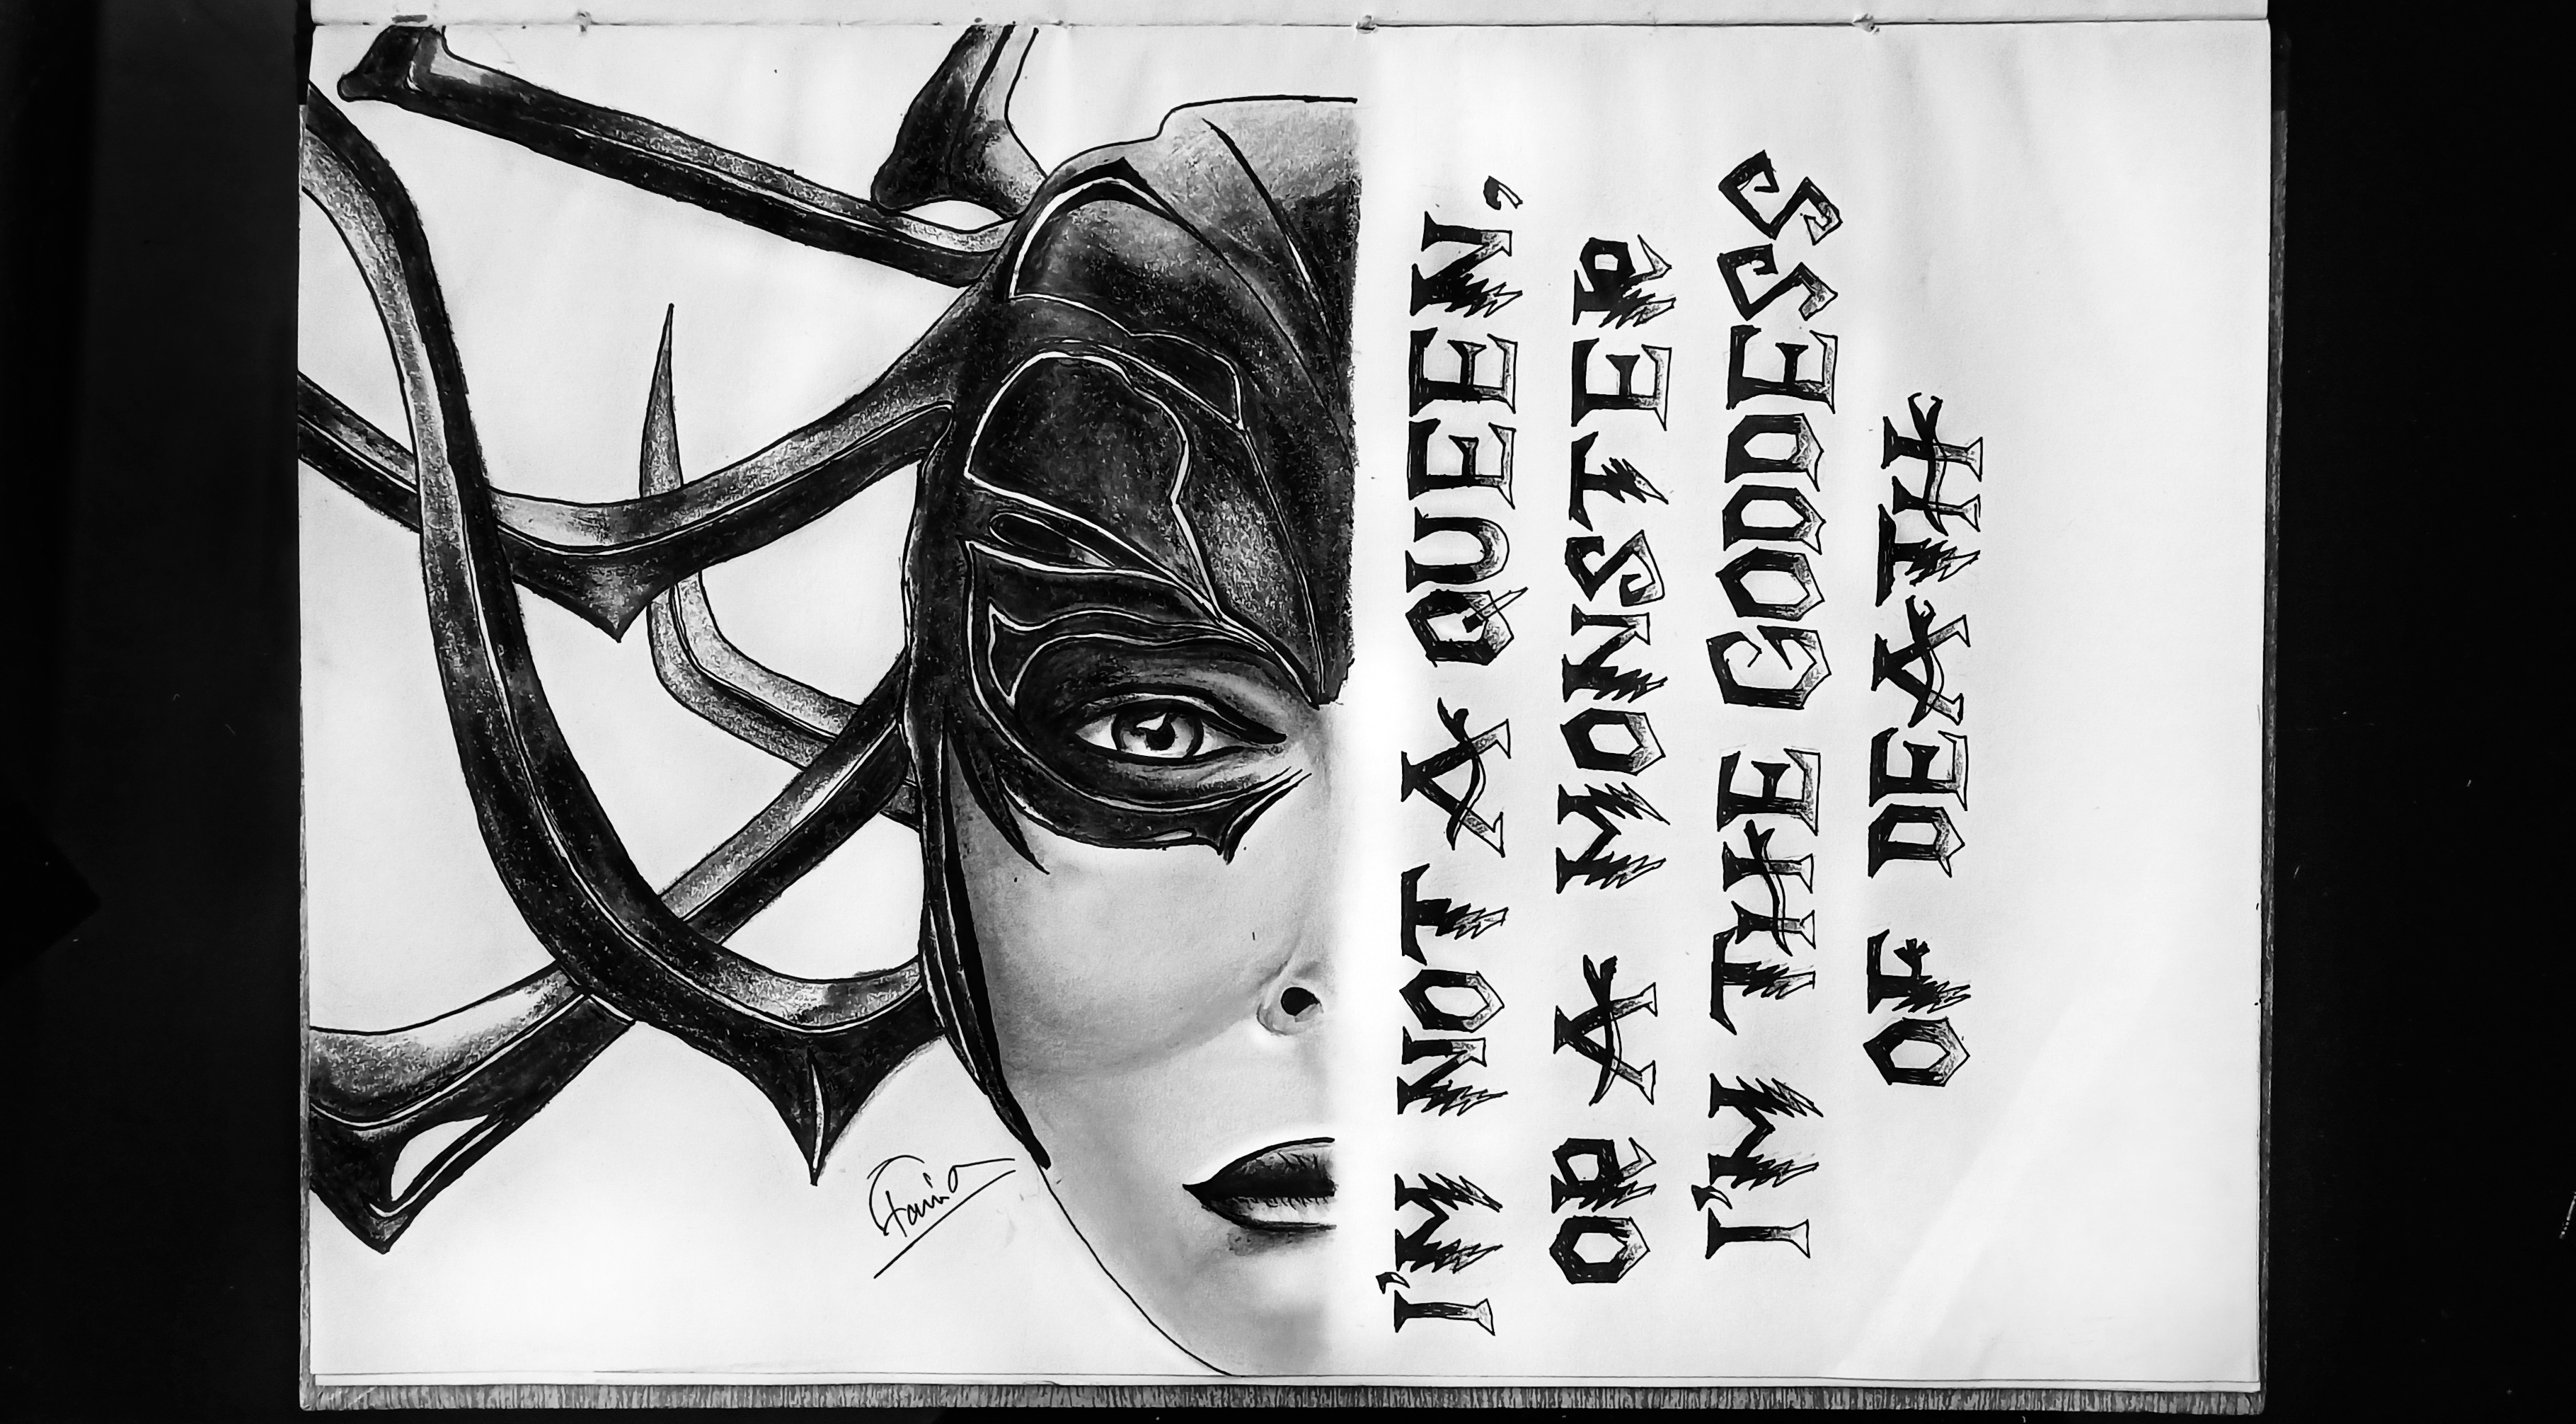 I'M NOT A QUEEN,
OR A MONSTER
I'M THE GODDESS
OF DEATH